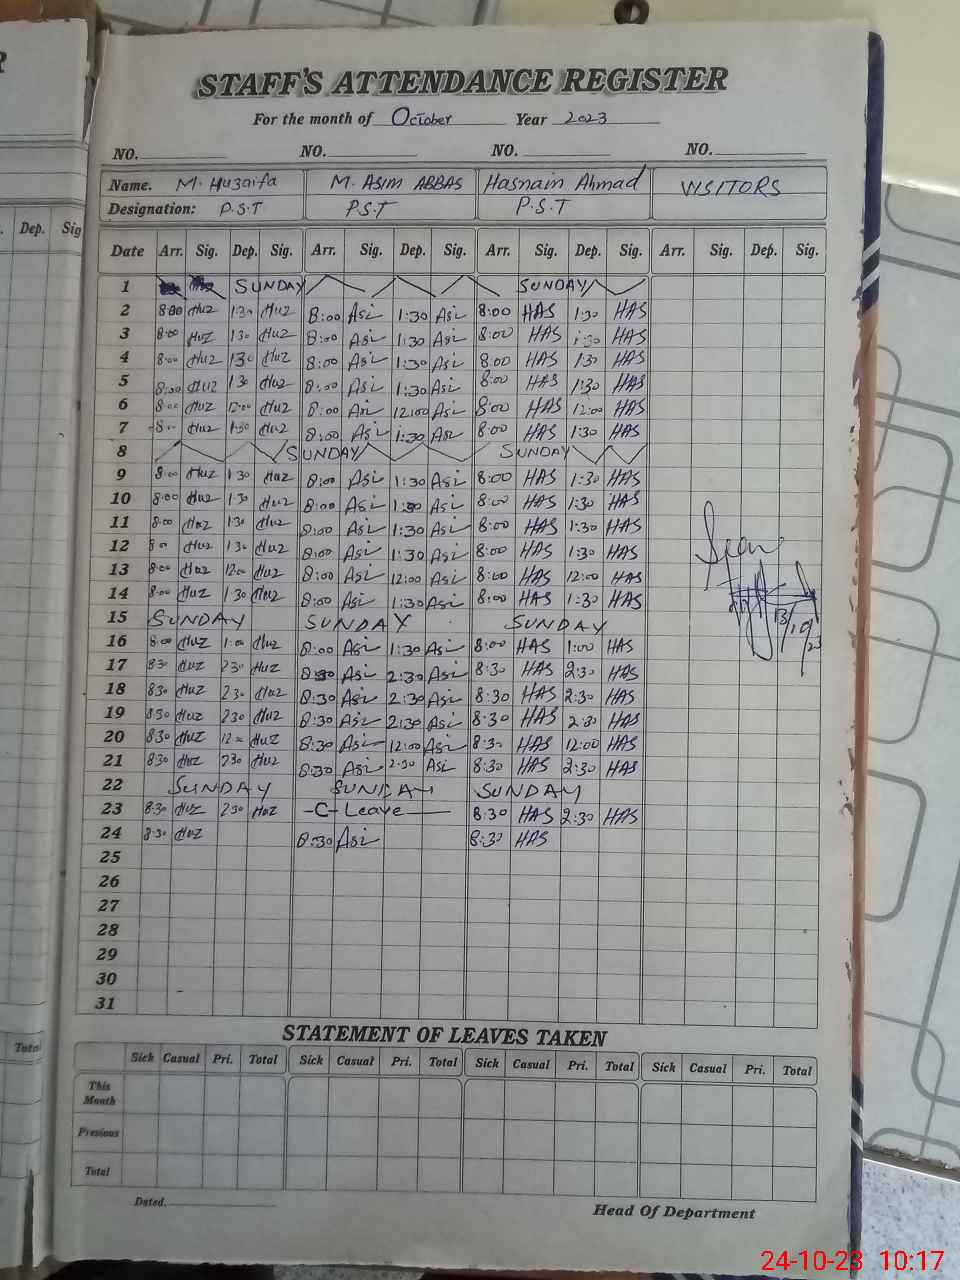 R
STAFF'S ATTENDANCE REGISTER
For the month of October Year 2023
NO. NO. NO. NO.
Name. M. Huzaifa M. ASIM ABBAS Hasnain Ahmad VISITORS
Designation: P.S.T P.S.T P.S.T
Dep. Sig
Date Arr. Sig. Dep. Sig. Arr. Sig. Dep. Sig. Arr. Sig. Dep. Sig. Arr. Sig. Dep. Sig.
1 SUNDAY SUNDAY
2 8:00 Huz 1:30 Huz 8:00 Asi 1:30 Asi 8:00 HAS 1:30 HAS
3 8:00 Huz 1:30 Huz 8:00 Asi 1:30 Asi 8:00 HAS 1:30 HAS
4 8:00 Huz 1:30 Huz 8:00 Asi 1:30 Asi 8:00 HAS 1:30 HAS
5 8:00 Huz 1:30 Huz 8:00 Asi 1:30 Asi 8:00 HAS 1:30 HAS
6 8:00 Huz 12:00 Huz 8:00 Asi 12:00 Asi 8:00 HAS 12:00 HAS
7 8:00 Huz 1:30 Huz 8:00 Asi 1:30 Asi 8:00 HAS 1:30 HAS
8 SUNDAY SUNDAY
9 8:00 Huz 1:30 Huz 8:00 Asi 1:30 Asi 8:00 HAS 1:30 HAS
10 8:00 Huz 1:30 Huz 8:00 Asi 1:30 Asi 8:00 HAS 1:30 HAS
11 8:00 Huz 1:30 Huz 8:00 Asi 1:30 Asi 8:00 HAS 1:30 HAS
12 8:00 Huz 1:30 Huz 8:00 Asi 1:30 Asi 8:00 HAS 1:30 HAS
13 8:00 Huz 12:00 Huz 8:00 Asi 12:00 Asi 8:00 HAS 12:00 HAS
14 8:00 Huz 1:30 Huz 8:00 Asi 1:30 Asi 8:00 HAS 1:30 HAS
13/10/23
15 SUNDAY SUNDAY SUNDAY
16 8:00 Huz 1:00 Huz 8:00 Asi 1:30 Asi 8:00 HAS 1:00 HAS
17 8:30 Huz 2:30 Huz 8:30 Asi 2:30 Asi 8:30 HAS 2:30 HAS
18 8:30 Huz 2:30 Huz 8:30 Asi 2:30 Asi 8:30 HAS 2:30 HAS
19 8:30 Huz 2:30 Huz 8:30 Asi 2:30 Asi 8:30 HAS 2:30 HAS
20 8:30 Huz 12:00 Huz 8:30 Asi 12:00 Asi 8:30 HAS 12:00 HAS
21 8:30 Huz 2:30 Huz 8:30 Asi 2:30 Asi 8:30 HAS 2:30 HAS
22 SUNDAY SUNDAY SUNDAY
23 8:30 Huz 2:30 Huz -C-Leave- 8:30 HAS 2:30 HAS
24 8:30 Huz 8:30 Asi 8:30 HAS
25
26
27
28
29
30
31
STATEMENT OF LEAVES TAKEN
Total
Sick Casual Pri. Total Sick Casual Pri. Total Sick Casual Pri. Total Sick Casual Pri. Total
This Month
Previous
Total
Dated.
Head Of Department
24-10-23 10:17